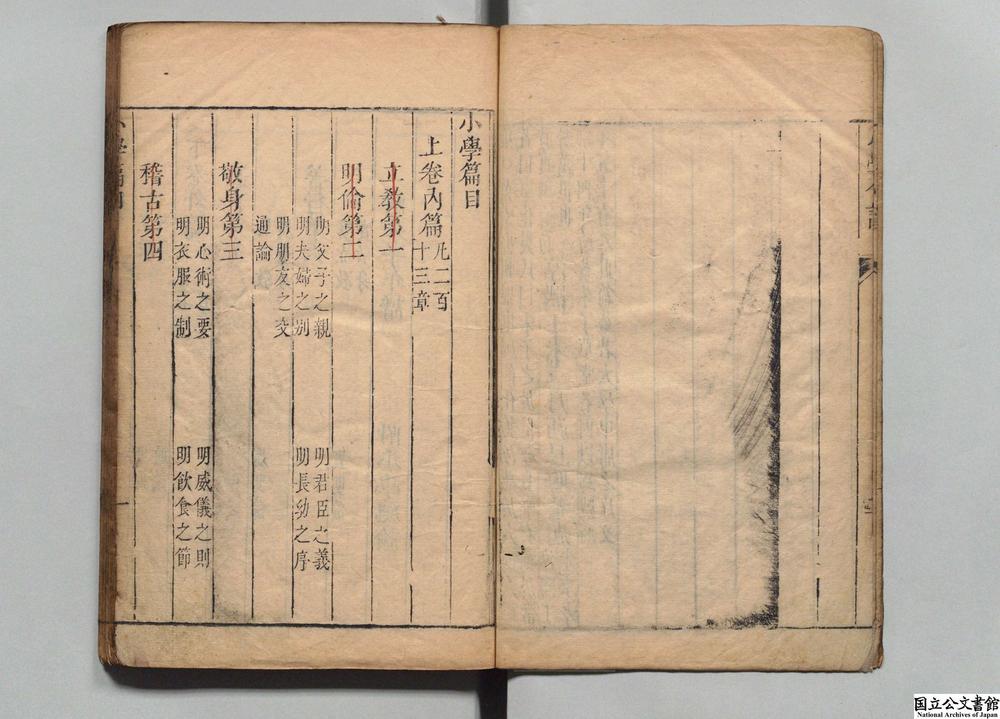 小學篇目
上卷内篇凢二百
十三章
立教第一
明倫第二
明父子之親 明君臣之義
明夫婦之别 明長幼之序
明朋友之交
通論
敬身第三
明心術之要 明威儀之則
明衣服之制 明飲食之節
稽古第四
一
国立公文書館
National Archives of Japan